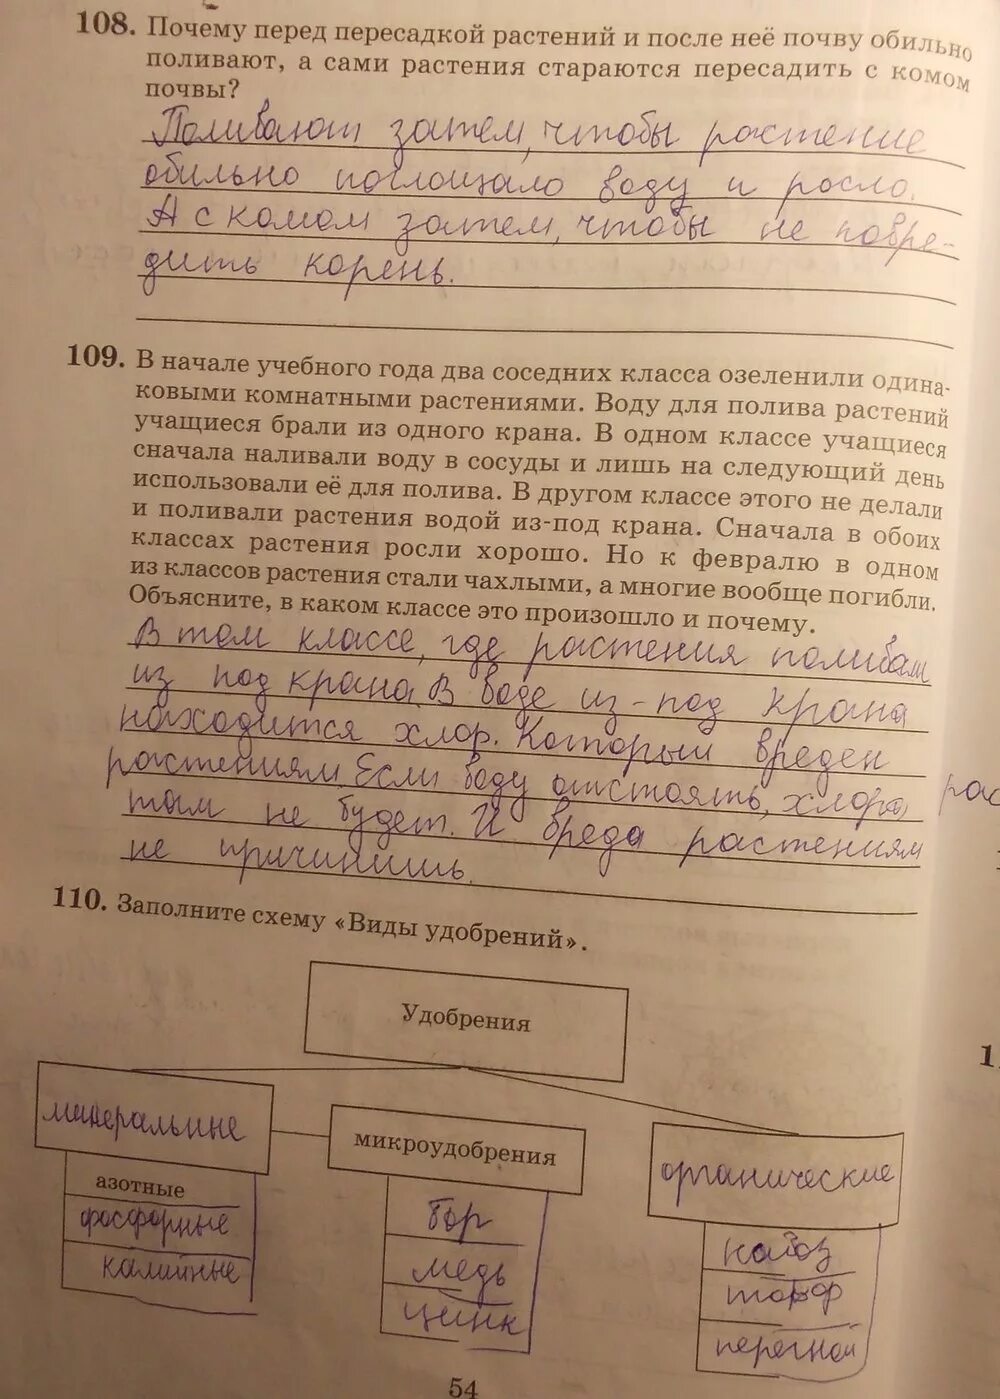 108. Почему перед пересадкой растений и после неё почву обильно
поливают, а сами растения стараются пересадить с комом
почвы?
Поливают затем, чтобы растение
обильно поглощало воду и росло.
А с комом затем, чтобы не повре-
дить корень.
109. В начале учебного года два соседних класса озеленили одина-
ковыми комнатными растениями. Воду для полива растений
учащиеся брали из одного крана. В одном классе учащиеся
сначала наливали воду в сосуды и лишь на следующий день
использовали её для полива. В другом классе этого не делали
и поливали растения водой из-под крана. Сначала в обоих
классах растения росли хорошо. Но к февралю в одном
из классов растения стали чахлыми, а многие вообще погибли.
Объясните, в каком классе это произошло и почему.
В том классе, где растения поливали
из под крана. В воде из-под крана
находится хлор. Который вреден
растениям. Если воду отстоять, хлора
там не будет. И вреда растениям
не причинишь.
110. Заполните схему «Виды удобрений».
Удобрения
минеральные
микроудобрения
органические
азотные
фосфорные
калийные
бор
медь
цинк
навоз
торф
перегной
54